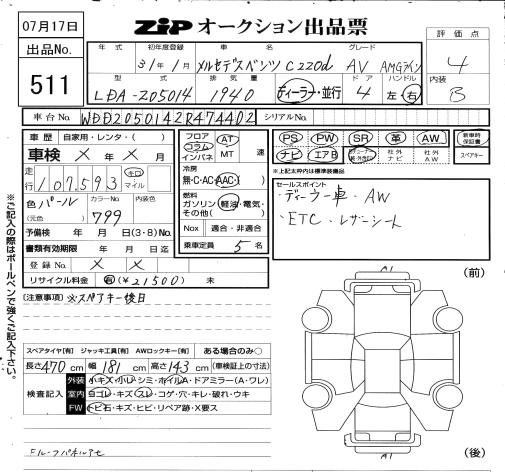 07月17日
ZiP オークション出品票
出品No.
511
年式 初年度登録 車名 グレード
31年1月 メルセデスベンツ C220d AV AMGライン
型式 排気量 ドア ハンドル
LDA-205014 1940 ディーラー・並行 4 左・右
評価点
4
内装
B
車台No. WDD2050142R474402 シリアルNo.
車歴 自家用・レンタ・( )
車検 × 年 × 月
走行 107,593 キロ マイル
色 パール カラーNo. 内装色
(元色) 799
予備検 年 月 日(3・8)Mo.
書類有効期限 年 月 日迄
登録No. × ×
リサイクル料金 有(¥21500) 未
フロア コラム インパネ AT MT 速
冷房
無・C・AC・AAC・( )
燃料
ガソリン・軽油・電気・その他( )
Nox 適合・非適合
乗車定員 5 名
PS PW SR 革 AW 新車時保証書
ナビ エアB 社外ナビ 社外AW スペアキー
※上記太枠内は標準装備品
セールスポイント
・ディーラー車・AW
・ETC・レザーシート
※ご記入の際はボールペンで強くご記入下さい。
(注意事項) ※スペアキー後日
(前)
スペアタイヤ[有] ジャッキ工具[有] AWロックキー[有] ある場合のみ○
長さ 470 cm 幅 181 cm 高さ 143 cm (車検証上の寸法)
検査記入
外装 小キズ・小ヘコ・シミ・ホイルA・ドアミラー(A・ワレ)
室内 ヨゴレ・キズ・スレ・コゲ・穴・キレ・破れ・ウキ
FW トビ石・キズ・ヒビ・リペア跡・X要ス
(後)
A1
A1